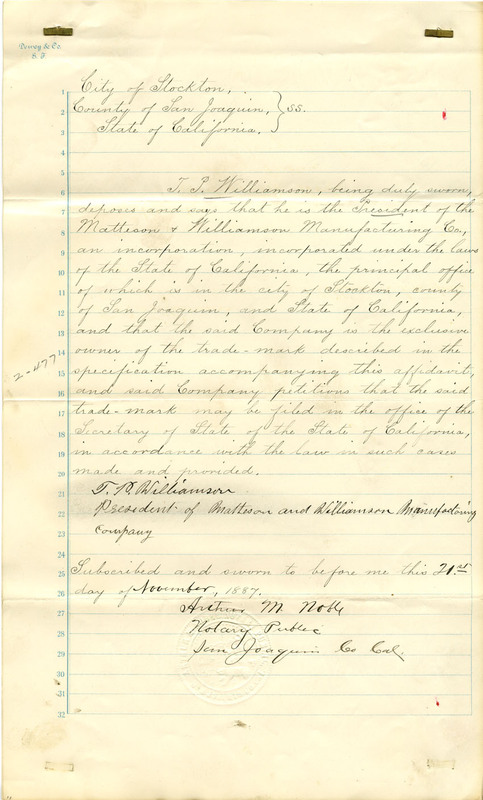 Dewey & Co.
S. F.
1 City of Stockton,
2 County of San Joaquin, } ss.
3 State of California.
4
5
6 T. P. Williamson, being duly sworn,
7 deposes and says that he is the President of the
8 Matteson & Williamson Manufacturing Co.,
9 an incorporation, incorporated under the laws
10 of the State of California, the principal office
11 of which is in the city of Stockton, county
12 of San Joaquin, and State of California,
13 and that the said Company is the exclusive
14 owner of the trade-mark described in the
15 specification accompanying this affidavit,
16 and said Company petitions that the said
17 trade-mark may be filed in the office of the
18 Secretary of State of the State of California,
19 in accordance with the law in such cases
20 made and provided.
21 T. P. Williamson
22 President of Matteson and Williamson Manufactoring
23 Company
24
25 Subscribed and sworn to before me this 21st
26 day of November, 1887.
27 Arthur M. Noble
28 Notary Public
29 San Joaquin Co Cal.
30
31
32
2-477